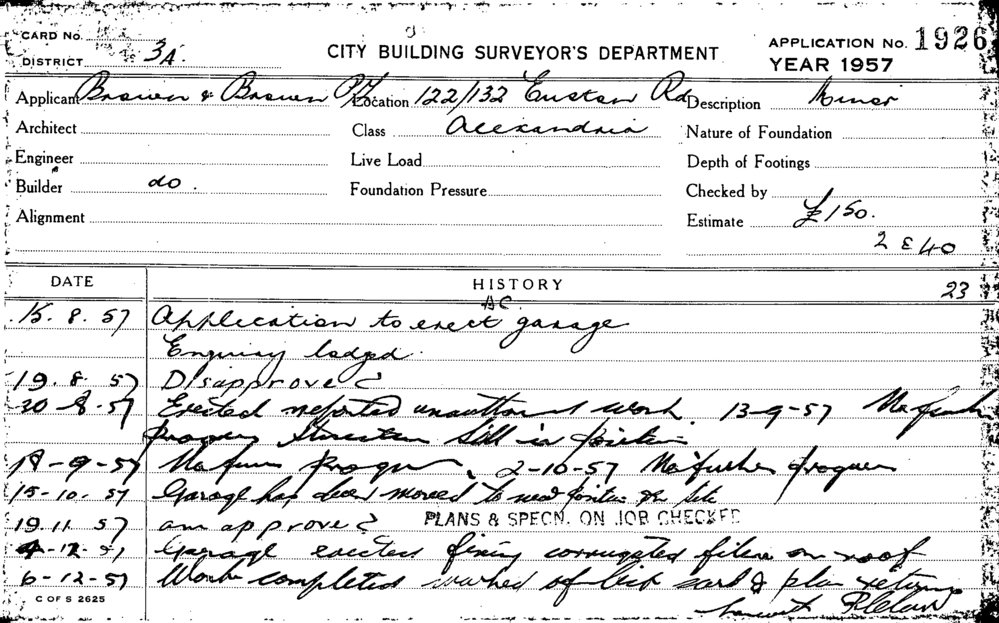 CARD No.
DISTRICT 3A.
CITY BUILDING SURVEYOR'S DEPARTMENT
APPLICATION No. 1926
YEAR 1957
Applicant Brown & Brown P/L Location 122/132 Euston Rd Description Minor
Architect Class Alexandria Nature of Foundation
Engineer Live Load Depth of Footings
Builder do. Foundation Pressure Checked by
Alignment Estimate £150.
2 E 40
DATE HISTORY 23
AC
15. 8. 57 Application to erect garage
Enquiry lodged.
19. 8. 57 Disapprove
30-8-57 Erected reported work. 13-9-57 No further
progress in position
-9-57 No further progress, 2-10-57 No further progress
15-10. 57 Garage has been moved to new position on site
19. 11. 57 am approve PLANS & SPECN. ON JOB CHECKED
-12-57 Garage erected fixing corrugated on roof
6-12-57 Work completed card & plan
C OF S 2625